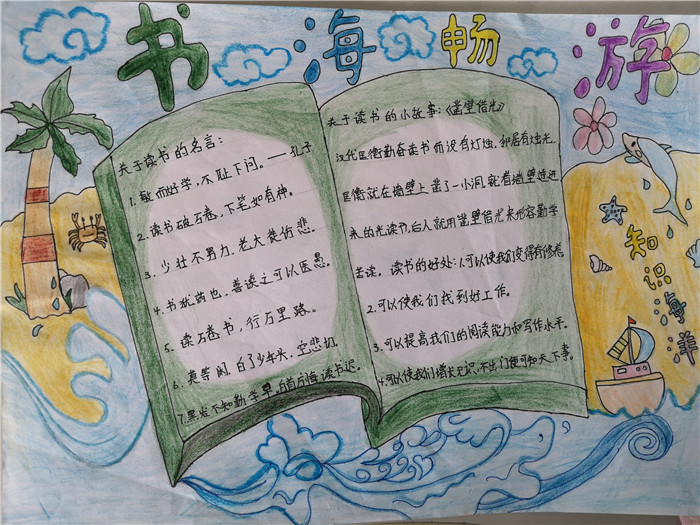 书海畅游
关于读书的名言：
1. 敏而好学，不耻下问。——孔子
2. 读书破万卷，下笔如有神。
3. 少壮不努力，老大徒伤悲。
4. 书犹药也，善读之可以医愚。
5. 读万卷书，行万里路。
6. 莫等闲，白了少年头，空悲切。
7. 黑发不知勤学早，白首方悔读书迟。
关于读书的小故事：《凿壁借光》
汉代匡衡勤奋读书而没有灯烛，邻居有烛光，
匡衡就在墙壁上凿了一小洞，就着墙壁透进
来的光读书，后人就用凿壁借光来形容勤学
苦读。读书的好处：1.可以使我们变得有修养
2.可以使我们找到好工作。
3.可以提高我们的阅读能力和写作水平。
4.可以使我们增长见识，不出门便可知天下事。
知识海洋